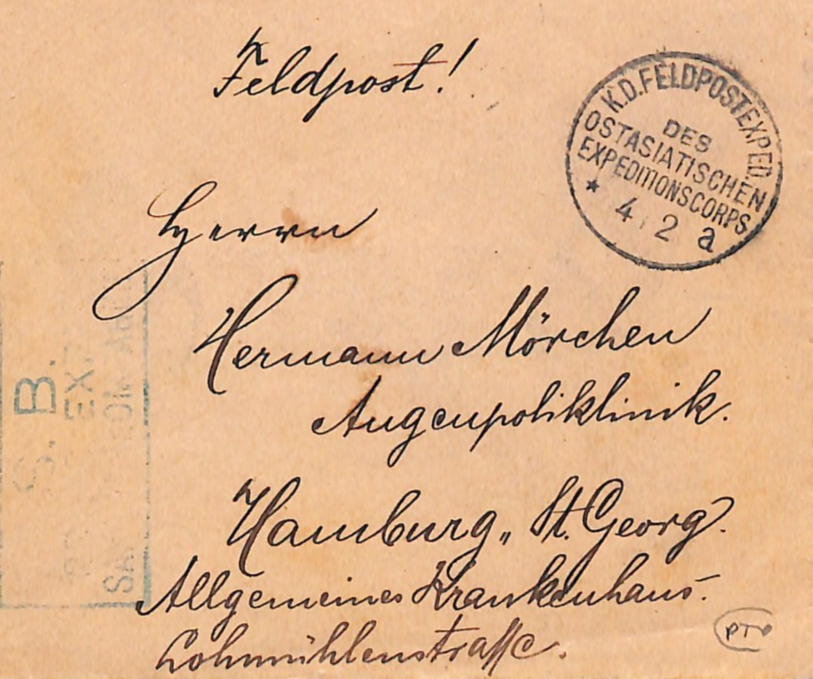 Feldpost!
K.D.FELDPOSTEXPED.
DES
OSTASIATISCHEN
EXPEDITIONSCORPS
* 4 2 a
Herrn
Hermann Mörchen
Augenpoliklinik.
Hamburg„ St. Georg.
Allgemeines Krankenhaus-
Lohmühlenstraſse.
S. B.